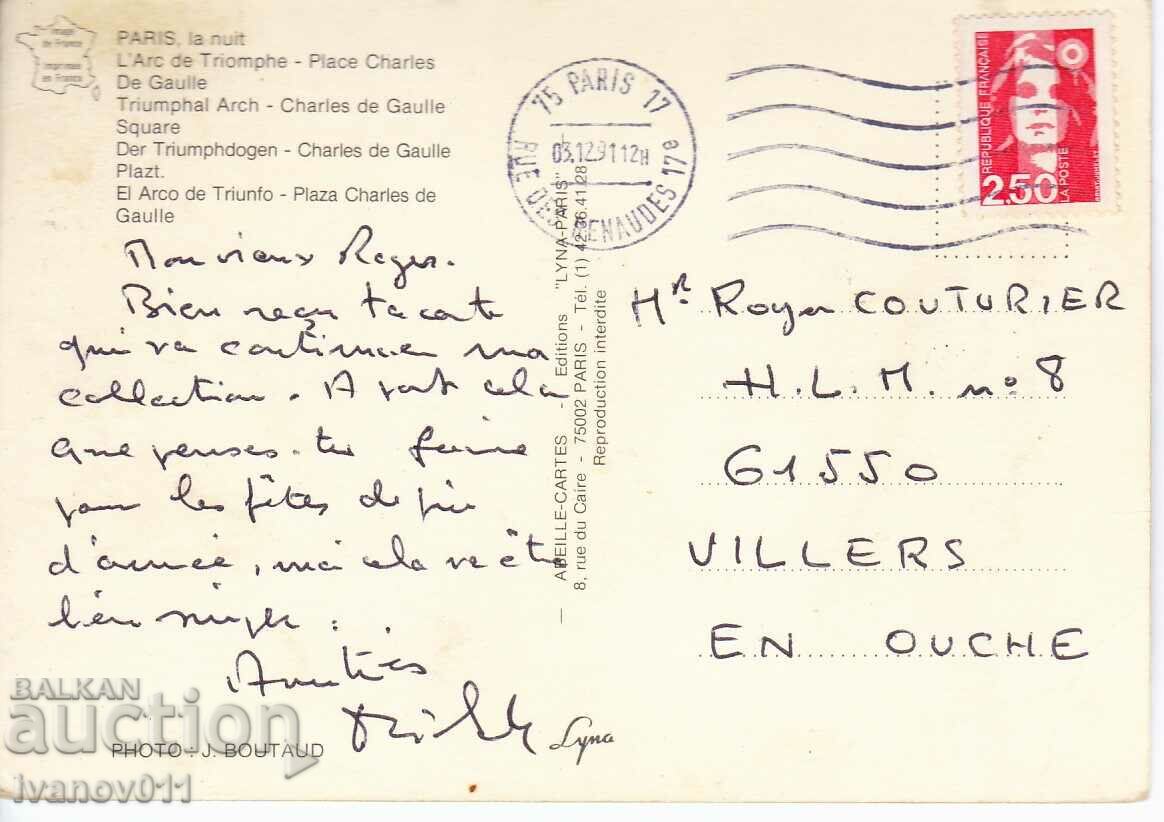 Image
de France
Imprimée
en France
PARIS, la nuit
L'Arc de Triomphe - Place Charles
De Gaulle
Triumphal Arch - Charles de Gaulle
Square
Der Triumphdogen - Charles de Gaulle
Plazt.
El Arco de Triunfo - Plaza Charles de
Gaulle
75 PARIS 17
03.12.91 12H
RUE DES RENAUDES 17e
REPUBLIQUE FRANÇAISE
2,50
LA POSTE
Mon vieux Roger.
Bien reçu ta carte
qui va continuer ma
collection. A part cela
que penses-tu faire
pour les fêtes de fin
d'année, moi cela va être
bien simple :
Amitiés
Mr Roger COUTURIER
H.L.M. no 8
61550
VILLERS
EN OUCHE
— ABEILLE-CARTES - Editions "LYNA-PARIS"
8, rue du Caire - 75002 PARIS - Tél. (1) 42.36.41.28
Reproduction interdite
PHOTO : J. BOUTAUD
Lyna
BALKAN
auction
ivanov011